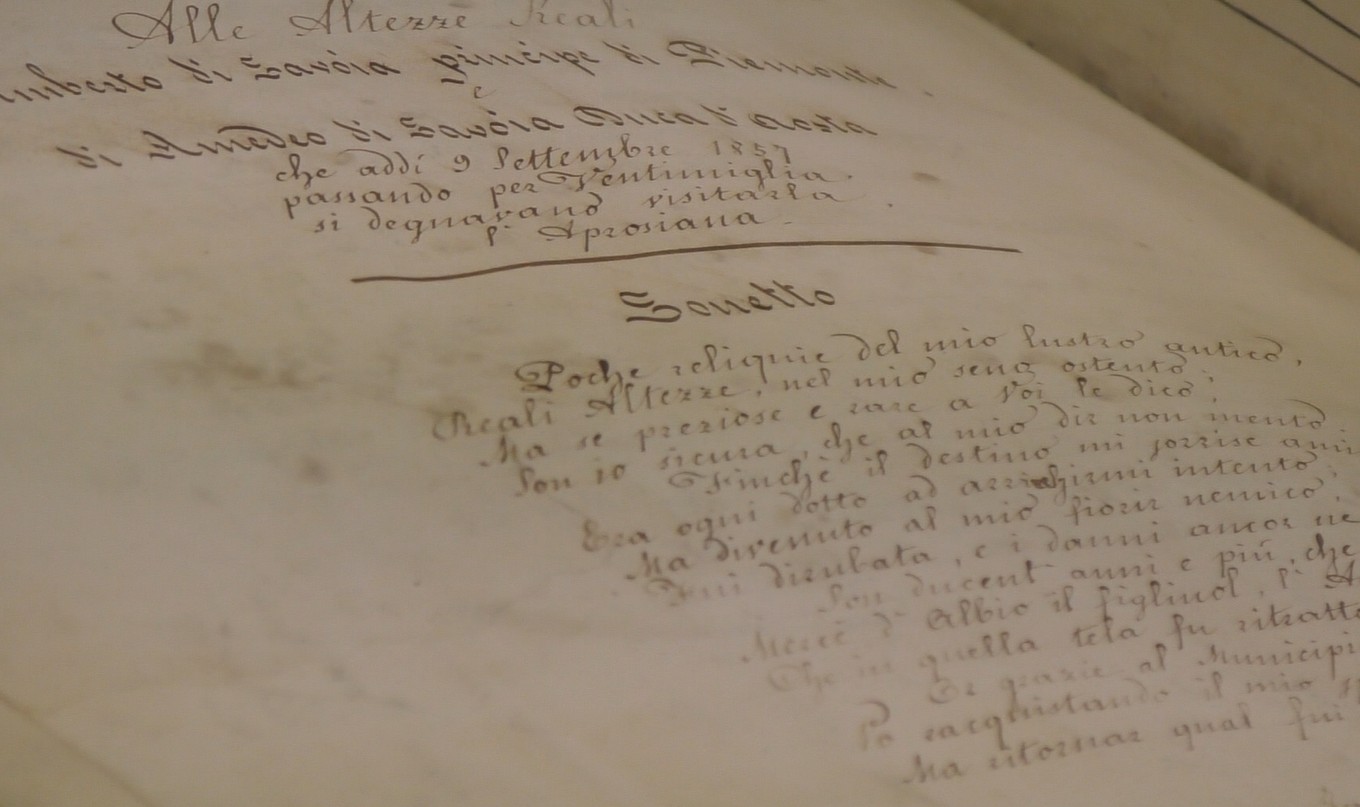 Alle Altezze Reali
Umberto di Savoia principe di Piemonte
e
di Amedeo di Savoia Duca d'Aosta
che addì 9 Settembre 1857
passando per Ventimiglia
si degnavano visitarla
l'Aprosiana.
Sonetto
Poche reliquie del mio lustro antico,
Reali Altezze, nel mio seno ostento;
Ma se preziose e rare a Voi le dico,
Son io sicura, che al mio dir non mento.
Finchè il destino mi sorrise ami
Era ogni dotto ad arrichirmi intento;
Ma divenuto al mio fiorir nemico,
Fui dirubata, e i danni ancor ne
Son ducent'anni e più, che
Mercè d'Albio il figliuol, l'A
Che in quella tela fu ritratto
Or grazie al Municipi
Vo racquistando il mio sp
Ma ritornar qual fui